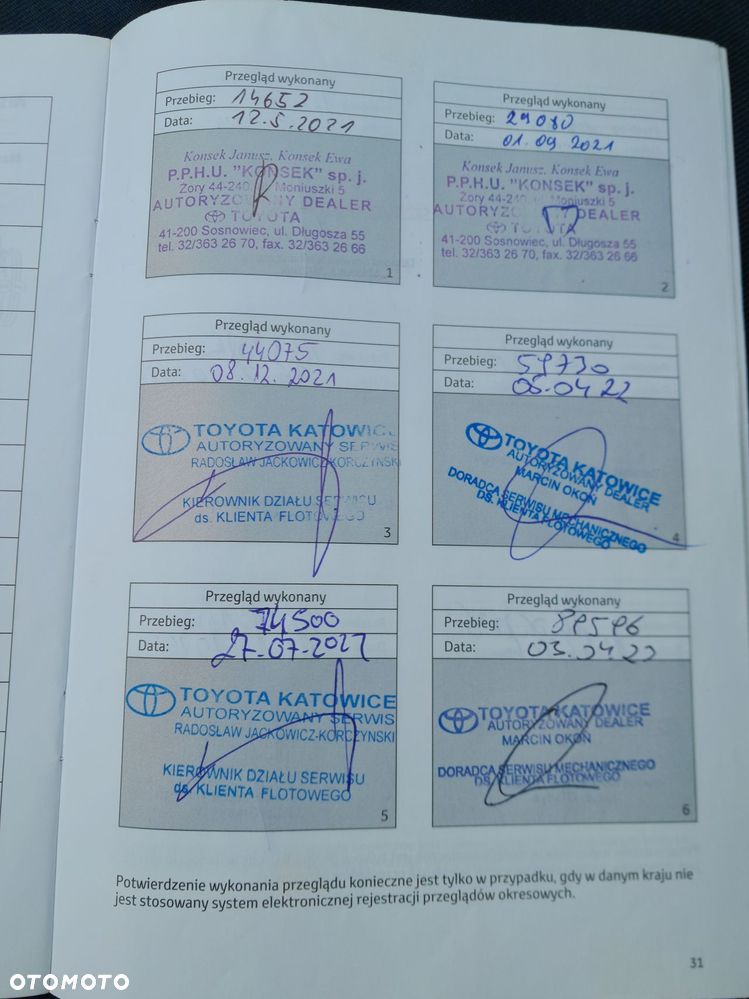 Przegląd wykonany
Przebieg: 14652
Data: 12.5.2021
Konsek Janusz, Konsek Ewa
P.P.H.U. "KONSEK" sp. j.
Żory 44-240, Moniuszki 5
AUTORYZOWANY DEALER
TOYOTA
41-200 Sosnowiec, ul. Długosza 55
tel. 32/363 26 70, fax. 32/363 26 66
1
Przegląd wykonany
Przebieg: 29080
Data: 01.09.2021
Konsek Janusz, Konsek Ewa
P.P.H.U. "KONSEK" sp. j.
Żory 44-240, Moniuszki 5
AUTORYZOWANY DEALER
TOYOTA
41-200 Sosnowiec, ul. Długosza 55
tel. 32/363 26 70, fax. 32/363 26 66
2
Przegląd wykonany
Przebieg: 44075
Data: 08.12.2021
TOYOTA KATOWICE
AUTORYZOWANY SERWIS
RADOSŁAW JACKOWICZ-KORCZYŃSKI
KIEROWNIK DZIAŁU SERWISU
ds. KLIENTA FLOTOWEGO
3
Przegląd wykonany
Przebieg: 59730
Data: 05.04.22
TOYOTA KATOWICE
AUTORYZOWANY DEALER
MARCIN OKOŃ
DORADCA SERWISU MECHANICZNEGO
DS. KLIENTA FLOTOWEGO
4
Przegląd wykonany
Przebieg: 74500
Data: 27-07-2022
TOYOTA KATOWICE
AUTORYZOWANY SERWIS
RADOSŁAW JACKOWICZ-KORCZYŃSKI
KIEROWNIK DZIAŁU SERWISU
ds. KLIENTA FLOTOWEGO
5
Przegląd wykonany
Przebieg: 89596
Data:
TOYOTA KATOWICE
AUTORYZOWANY DEALER
MARCIN OKOŃ
DORADCA SERWISU MECHANICZNEGO
DS. KLIENTA FLOTOWEGO
6
Potwierdzenie wykonania przeglądu konieczne jest tylko w przypadku, gdy w danym kraju nie
jest stosowany system elektronicznej rejestracji przeglądów okresowych.
31
OTOMOTO